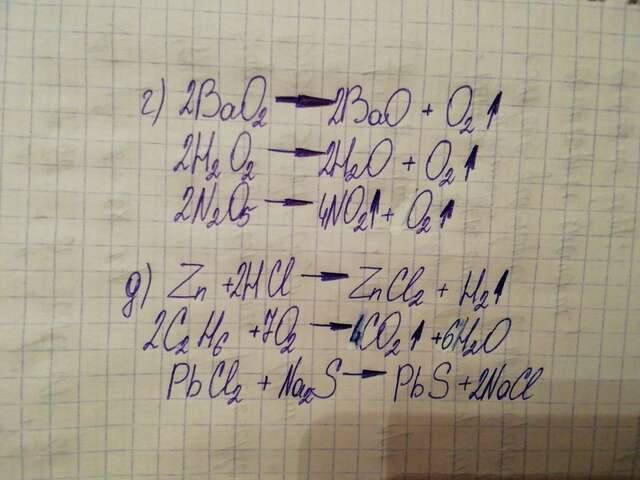 г) 2BaO₂ → 2BaO + O₂↑
2H₂O₂ → 2H₂O + O₂↑
2N₂O₅ → 4NO₂↑ + O₂↑
д) Zn + 2HCl → ZnCl₂ + H₂↑
2C₂H₆ + 7O₂ → 4CO₂↑ + 6H₂O
PbCl₂ + Na₂S → PbS + 2NaCl